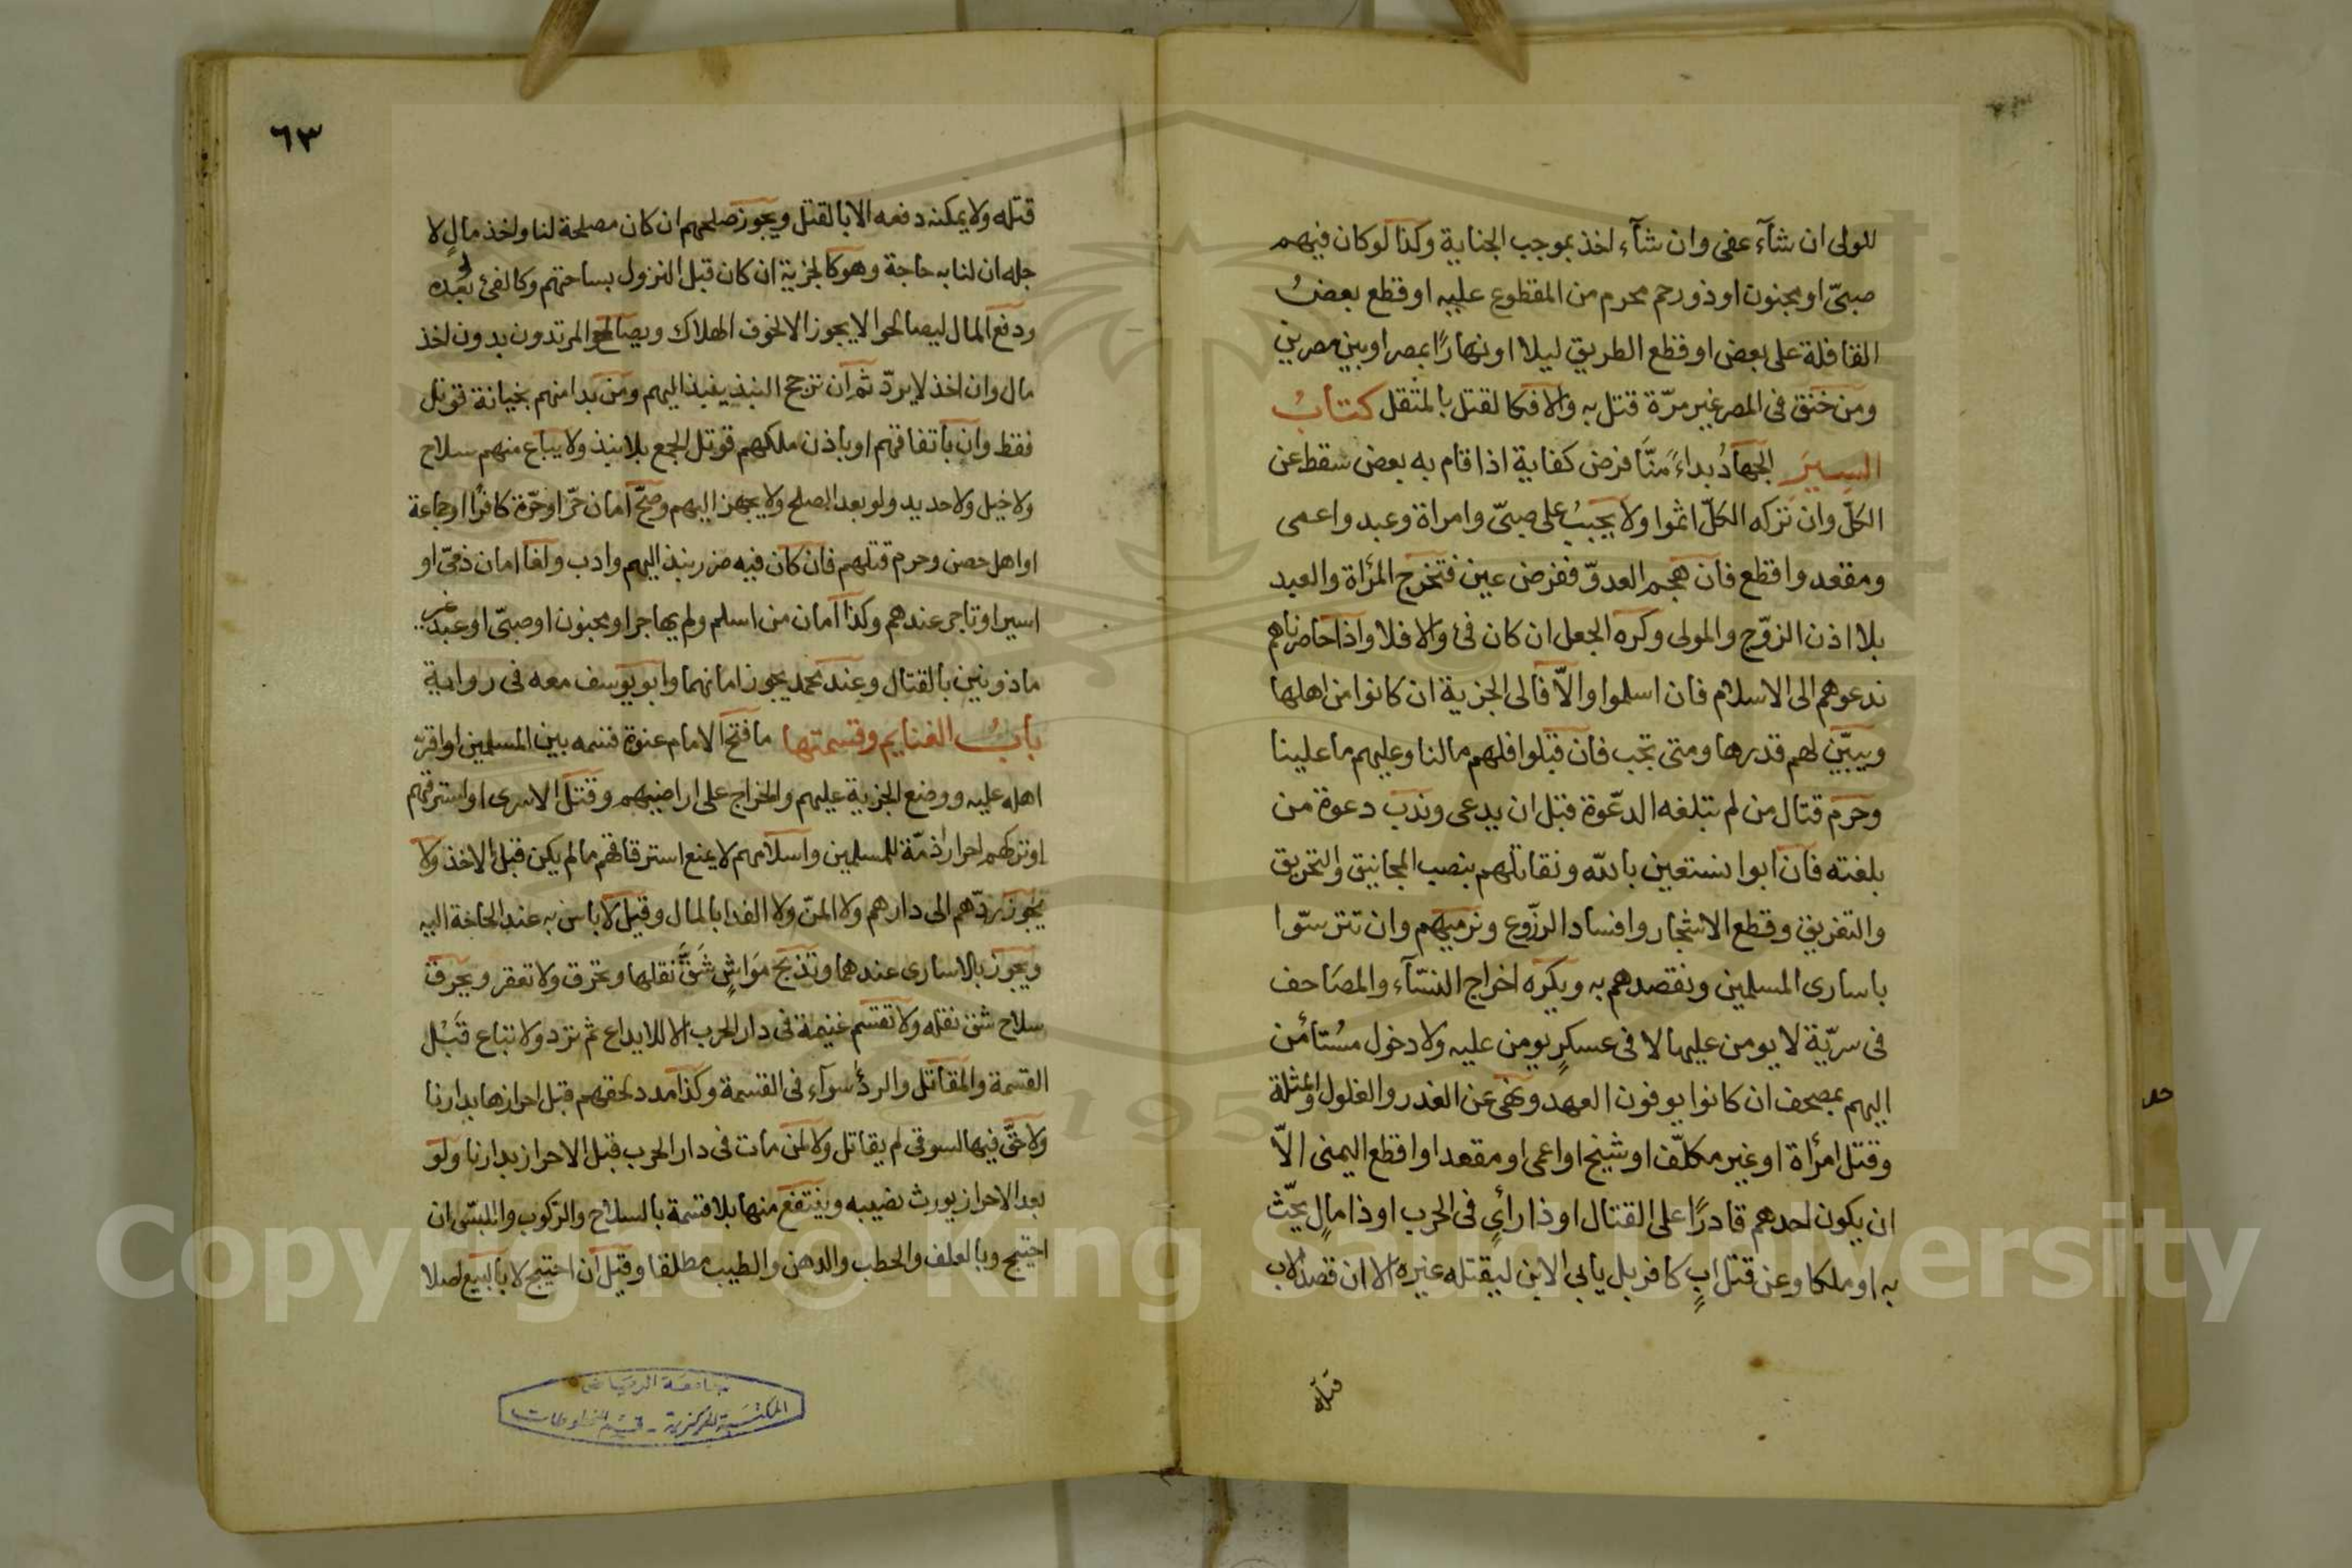 للولى ان شآء عفى وان شآء اخذ بموجب الجناية وكذا لو كان فيهم
صبىّ او مجنون او ذو رحم محرم من المقطوع عليه او قطع بعضُ
القافلة على بعض او قطع الطريق ليلا او نهارًا بمصر او بين مصرين
ومن خنق فى المصر غير مرّة قتل به والا فكالقتل بالمثقل كتابُ
السير الجهادُ بداءً منّا فرض كفاية اذا قام به بعض سقط عن
الكلّ وان تركه الكلّ اثموا ولا يجبُ على صبىّ وامراة وعبد واعمى
ومقعد واقطع فان هجم العدوّ ففرض عين فتخرج المرأة والعبد
بلا اذن الزوّج والمولى وكره الجعل ان كان فئ والا فلا واذا حاصرناهم
ندعوهم الى الاسلام فان اسلموا والّا فالى الجزية ان كانوا من اهلها
ويبيّن لهم قدرها ومتى تجب فان قبلوا فلهم مالنا وعليهم ما علينا
وحرم قتال من لم تبلغه الدعّوة قبل ان يدعى وندب دعوة من
بلغته فان ابوا نستعين بالله ونقاتلهم بنصب المجانيق والتحريق
والتغريق وقطع الاشجار وافساد الزرّوع ونرميهم وان تترسّوا
باسارى المسلمين ونقصدهم به ويكره اخراج النسّآء والمصَاحف
فى سريّة لا يومن عليها لا فى عسكرٍ يومن عليه ولا دخول مسُتأمن
اليهم بمصحف ان كانوا يوفون العهد ونهى عن الغدر والغلول والمثلة
وقتل امرأة او غير مكلّف او شيخ او اعمى او مقعد او اقطع اليمنى الّا
ان يكون احدهم قادرًا على القتال او ذا رأىٍ فى الحرب او ذا مالٍ يحّث
به او ملكا وعن قتل ابٍ كافر بل يأبى الابن ليقتله غيره الا ان قصد الاب
قتله
٦٣
قتله ولا يمكنه دفعه الا بالقتل ويجوز صلحهم ان كان مصلحة لنا واخذ مالٍ لا
جله ان لنا به حاجة وهو كالجزية ان كان قبل النزول بساحتهم وكالفئ لو بعده
ودفع المال ليصالحوا لا يجوز الا لخوف الهلاك ويصالح المرتدون بدون اخذ
مال وان اخذ لا يردّ ثم ان ترجح النبذ ينبذ اليهم ومن بدا منهم بخيانة قوتل
فقط وان باتفاقهم او باذن ملكهم قوتل الجمع بلا نبذ ولا يباع منهم سلاح
ولا خيل ولا حديد ولو بعد الصلح ولا يجهز اليهم وصحّ امان حرّ او حرّة كافرًا او جماعة
او اهل حصن وحرم قتلهم فان كان فيه ضرر ينبذ اليهم وادب ولغا امان ذمىّ او
اسير او تاجر عندهم وكذا امان من اسلم ولم يهاجر او مجنون او صبىّ او عبد غير
ماذونين بالقتال وعند محمد يجوز امانهما وابو يوسف معه فى رواية
بابُ الغنايم وقسمتها ما فتح الامام عنوة قسمه بين المسلمين او اقرّ
اهله عليه ووضع الجزية عليهم والخراج على اراضيهم وقتل الاسرى او استرقهم
او تركهم احرار ذمّة للمسلمين واسلامهم لا يمنع استرقاقهم ما لم يكن قبل الاخذ ولا
يجوز ردّهم الى دارهم ولا المنّ ولا الفدا بالمال وقيل لا باس به عند الحاجة اليه
ويجوز بالاسارى عندهما وتذبح موَاشٍ شَقَّ نقلها وتحرق ولا تعقر ويحرق
سلاح شق نقله ولا تقسم غنيمة فى دار الحرب الا للايداع ثم ترد ولا تباع قَبْل
القسمة والمقاتل والردُ سوآء فى القسمة وكذا مدد لحقهم قبل احرازها بدارنا
ولا حقَّ فيها لسوقى لم يقاتل ولا لمن مات فى دار الحرب قبل الاحراز بدارنا ولو
بعد الاحراز يورث نصيبه وينتفع منها بلا قسمة بالسلاح والركوب واللبس ان
احتيج وبالعلف والحطب والدهن والطيب مطلقا وقيل ان احتيج لا بالبيع اصلا
جامعة الرياض
المكتبة المركزية - قسم المخطوطات
1957
Copyright © King Saud University